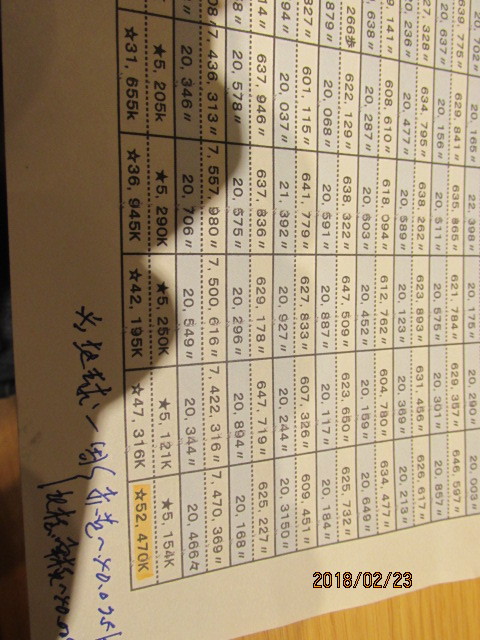 20, 702〃 20, 165〃 22, 398〃 20, 175〃 20, 290〃 20, 003〃
639, 775〃 629, 841〃 635, 865〃 621, 784〃 629, 357〃 646, 597〃
20, 637〃 20, 156〃 20, 511〃 20, 575〃 20, 301〃 20, 857〃
27, 328〃 634, 795〃 638, 262〃 623, 893〃 631, 456〃 626, 617〃
20, 236〃 20, 477〃 20, 589〃 20, 123〃 20, 369〃 20, 213〃
9, 141〃 608, 610〃 618, 094〃 612, 762〃 604, 780〃 634, 477〃
638〃 20, 287〃 20, 603〃 20, 452〃 20, 159〃 20, 649〃
266歩 622, 129〃 638, 322〃 647, 509〃 623, 650〃 625, 732〃
879〃 20, 068〃 20, 591〃 20, 887〃 20, 117〃 20, 184〃
827〃 601, 115〃 641, 779〃 627, 833〃 607, 326〃 609, 451〃
94〃 20, 037〃 21, 392〃 20, 927〃 20, 244〃 20, 3150〃
14〃 637, 946〃 637, 836〃 629, 178〃 647, 719〃 625, 227〃
8〃 20, 578〃 20, 575〃 20, 296〃 20, 894〃 20, 168〃
7, 436, 313〃 7, 557, 980〃 7, 500, 616〃 7, 422, 316〃 7, 470, 369〃
20, 346〃 20, 706〃 20, 549〃 20, 344〃 20, 466々
★5, 205k ★5, 290K ★5, 250K ★5, 121K ★5, 154K
☆31, 655k ☆36, 945K ☆42, 195K ☆47, 316K ☆52, 470K
※地球一周 赤道〜40.075
2018/02/23